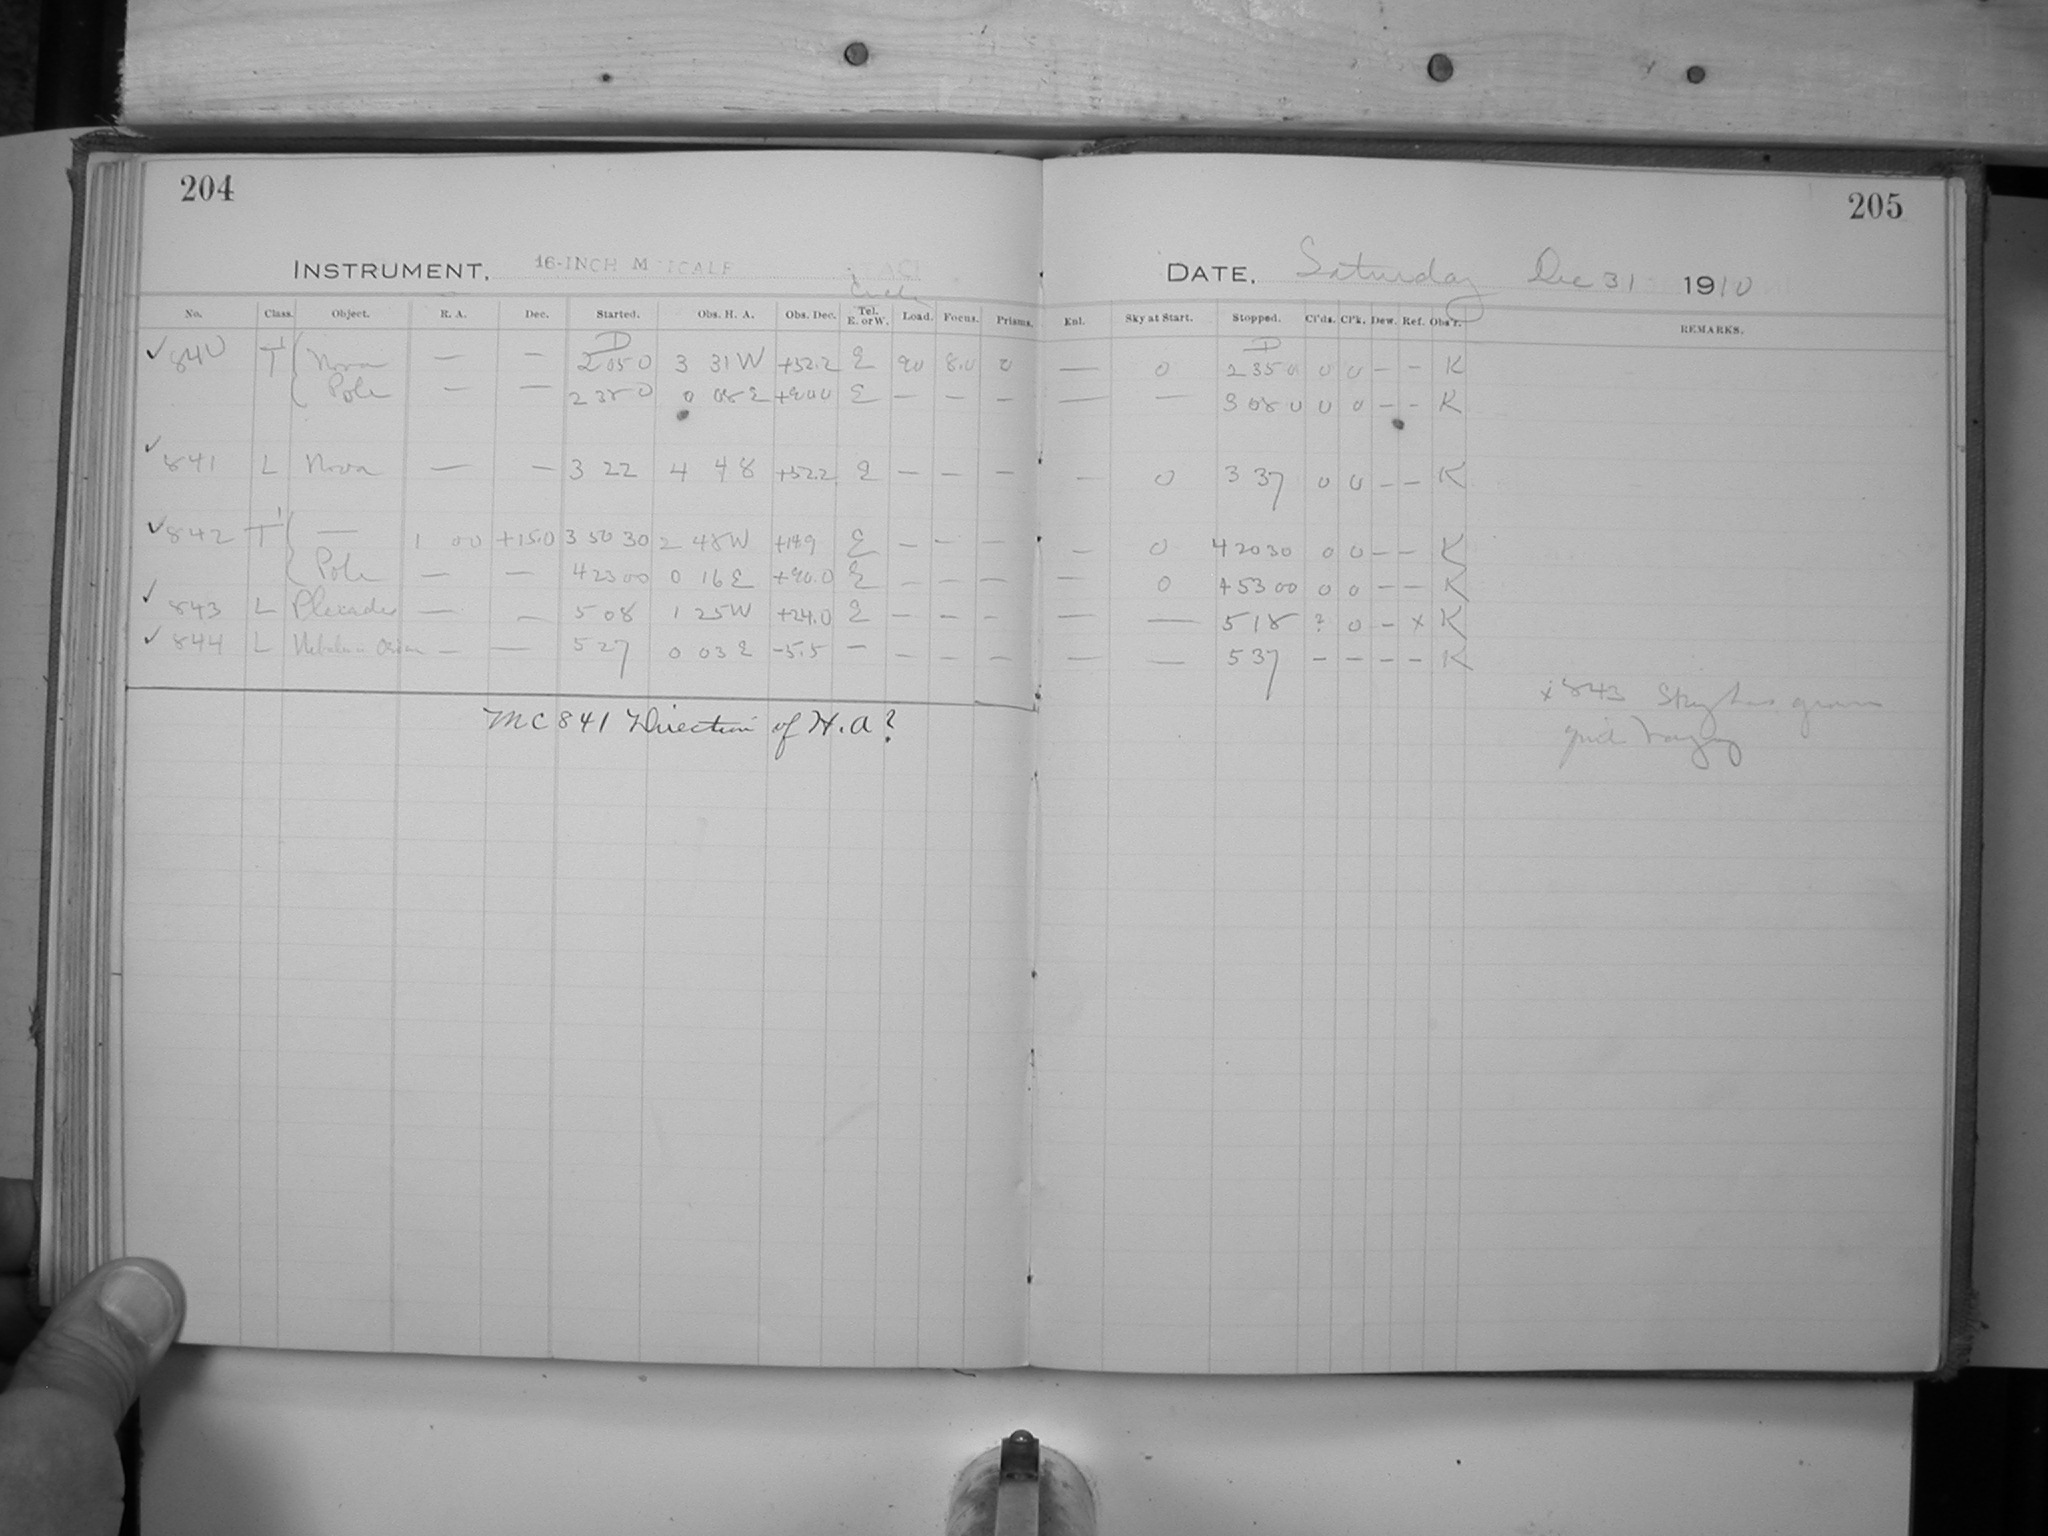 204
205
INSTRUMENT, 16-INCH METCALF
DATE, Saturday Dec 31 1910
Circle
No. Class. Object. R. A. Dec. Started. Obs. H. A. Obs. Dec. Tel. E. or W. Load. Focus. Prisms. Enl. Sky at Start. Stopped. Cl'ds. Cl'k. Dew. Ref. Obs'r. REMARKS.
✓ 840 T' { Nova — — 2 05 0 3 31 W +52.2 E 90 8.0 0 — 0 2 35 0 0 0 – – K
Pole — — 2 38 0 0 08 E +90.0 E — — — — — 3 08 0 0 0 – – K
✓ 841 L Nova — — 3 22 4 48 +52.2 E — — — — 0 3 37 0 0 – – K
✓ 842 T' { — 1 00 +15.0 3 50 30 2 48 W +14.9 E — — — — 0 4 20 30 0 0 – – K
Pole — — 4 23 00 0 16 E +90.0 E — — — — 0 4 53 00 0 0 – – K
✓ 843 L Pleiades — — 5 08 1 25 W +24.0 E — — — — — 5 18 ? 0 – x K
✓ 844 L Nebula in Orion — — 5 27 0 03 E -5.5 — — — — — — 5 37 – – – – K
x 843 Sky has grown
MC 841 Direction of H.A?